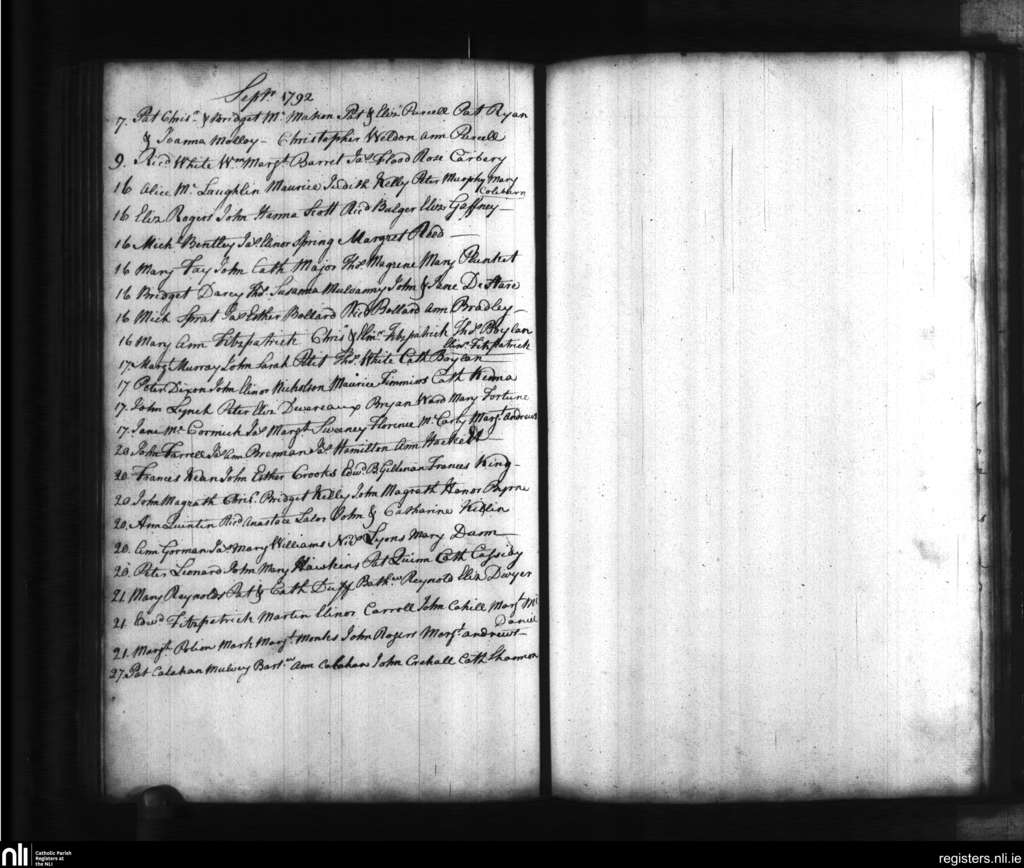 Septr 1792
7. Pat Chrisr & Bridget Mc Mahon Pat & Eliz Purcell Pat Ryan
& Joanna Molloy - Christopher Weldon Ann Purcell
9. Ricd White Wm Margt Barret Jas Flood Rose Carbery
16 Alice Mc Laughlin Maurice Judith Kelly Peter Murphy Mary
Coleburn
16 Eliz Rogers John Hanna Scott Ricd Bulger Eliz Gaffney -
16 Michl Bentley Jas Elinor Spring Margret Rood -
16 Mary Fay John Cath Major Thos Magrene Mary Plunket
16 Bridget Darcy Thos Susanna Mulvanny John & Jane
16 Mich Sprat Jas Esther Bollard Ricd Bollard Ann Bradley -
16 Mary Ann Fitzpatrick Chris & Elinr Fitzpatrick Thos Boylan
Elinr Fitzpatrick
17. Margt Murray John Sarah Petit Thos White Cath Boylan -
17 Peter Dixon John Elinor Nicholson Maurice Timmins Cath Kenna
17. John Lynch Peter Eliz Devereaux Bryan Ward Mary Fortune
17. Jane Mc Cormick Jas Margt Sweeney Florence Mc Carty Margt Andrews
20 John Farrell Jas Ann Brennan Jas Hamilton Ann Hackett -
20. Frances Kean John Esther Crooks Edwd Frances King -
20 John Magrath Chrisr Bridget Kelly John Magrath Honor Byrne
20. Ann Quintin Ricd Anastace Lalor John & Catharine
20. Ann Gorman Jas Mary Williams Lyons Mary Dason
20. Peter Leonard John Mary Hawkins Pat Quinn Cath Cassidy
21 Mary Reynolds Pat & Cath Duff Bathw Reynold Eliz Dwyer
21 Edwd Fitzpatrick Martin Elinor Carroll John Cahill Margt Mc
Daniel
21. Margt Mark Margt Monks John Rogers Margt Andrews -
27. Pat Calahan Mulvey Bartw Ann Calahan John Crehall Cath Shannon
nli
Catholic Parish
Registers at
the NLI
registers.nli.ie